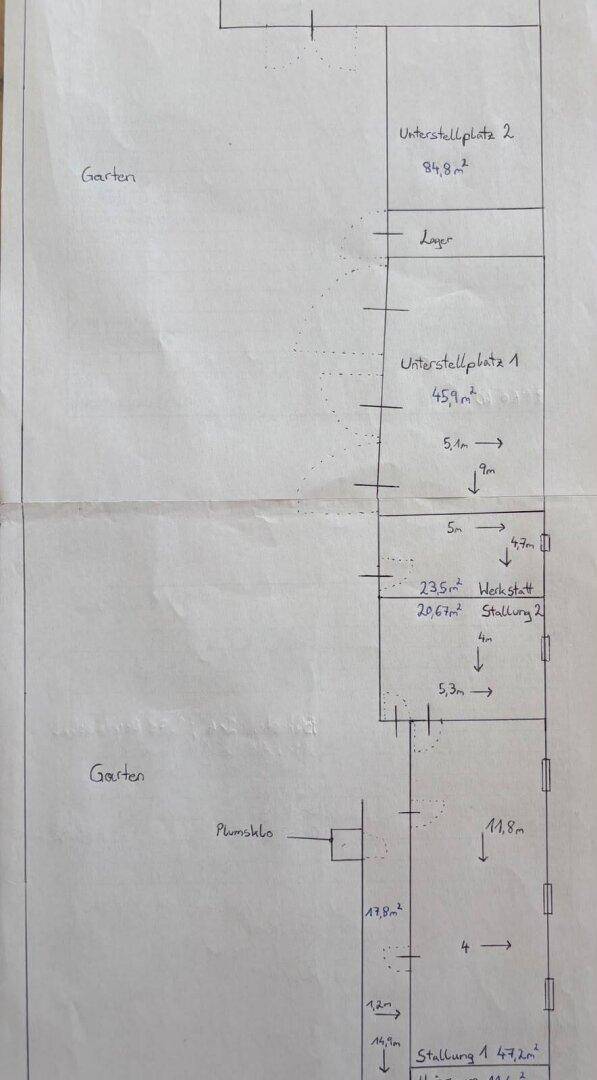 Unterstellplatz 2
84,8m²
Garten
Lager
Unterstellplatz 1
45,9m²
5,1m
9m
5m
4,7m
23,5m² Werkstatt
20,67m² Stallung 2
4m
5,3m
Garten
Plumsklo
11,8m
17,8m²
4
1,2m
14,9m
Stallung 1 47,2m²